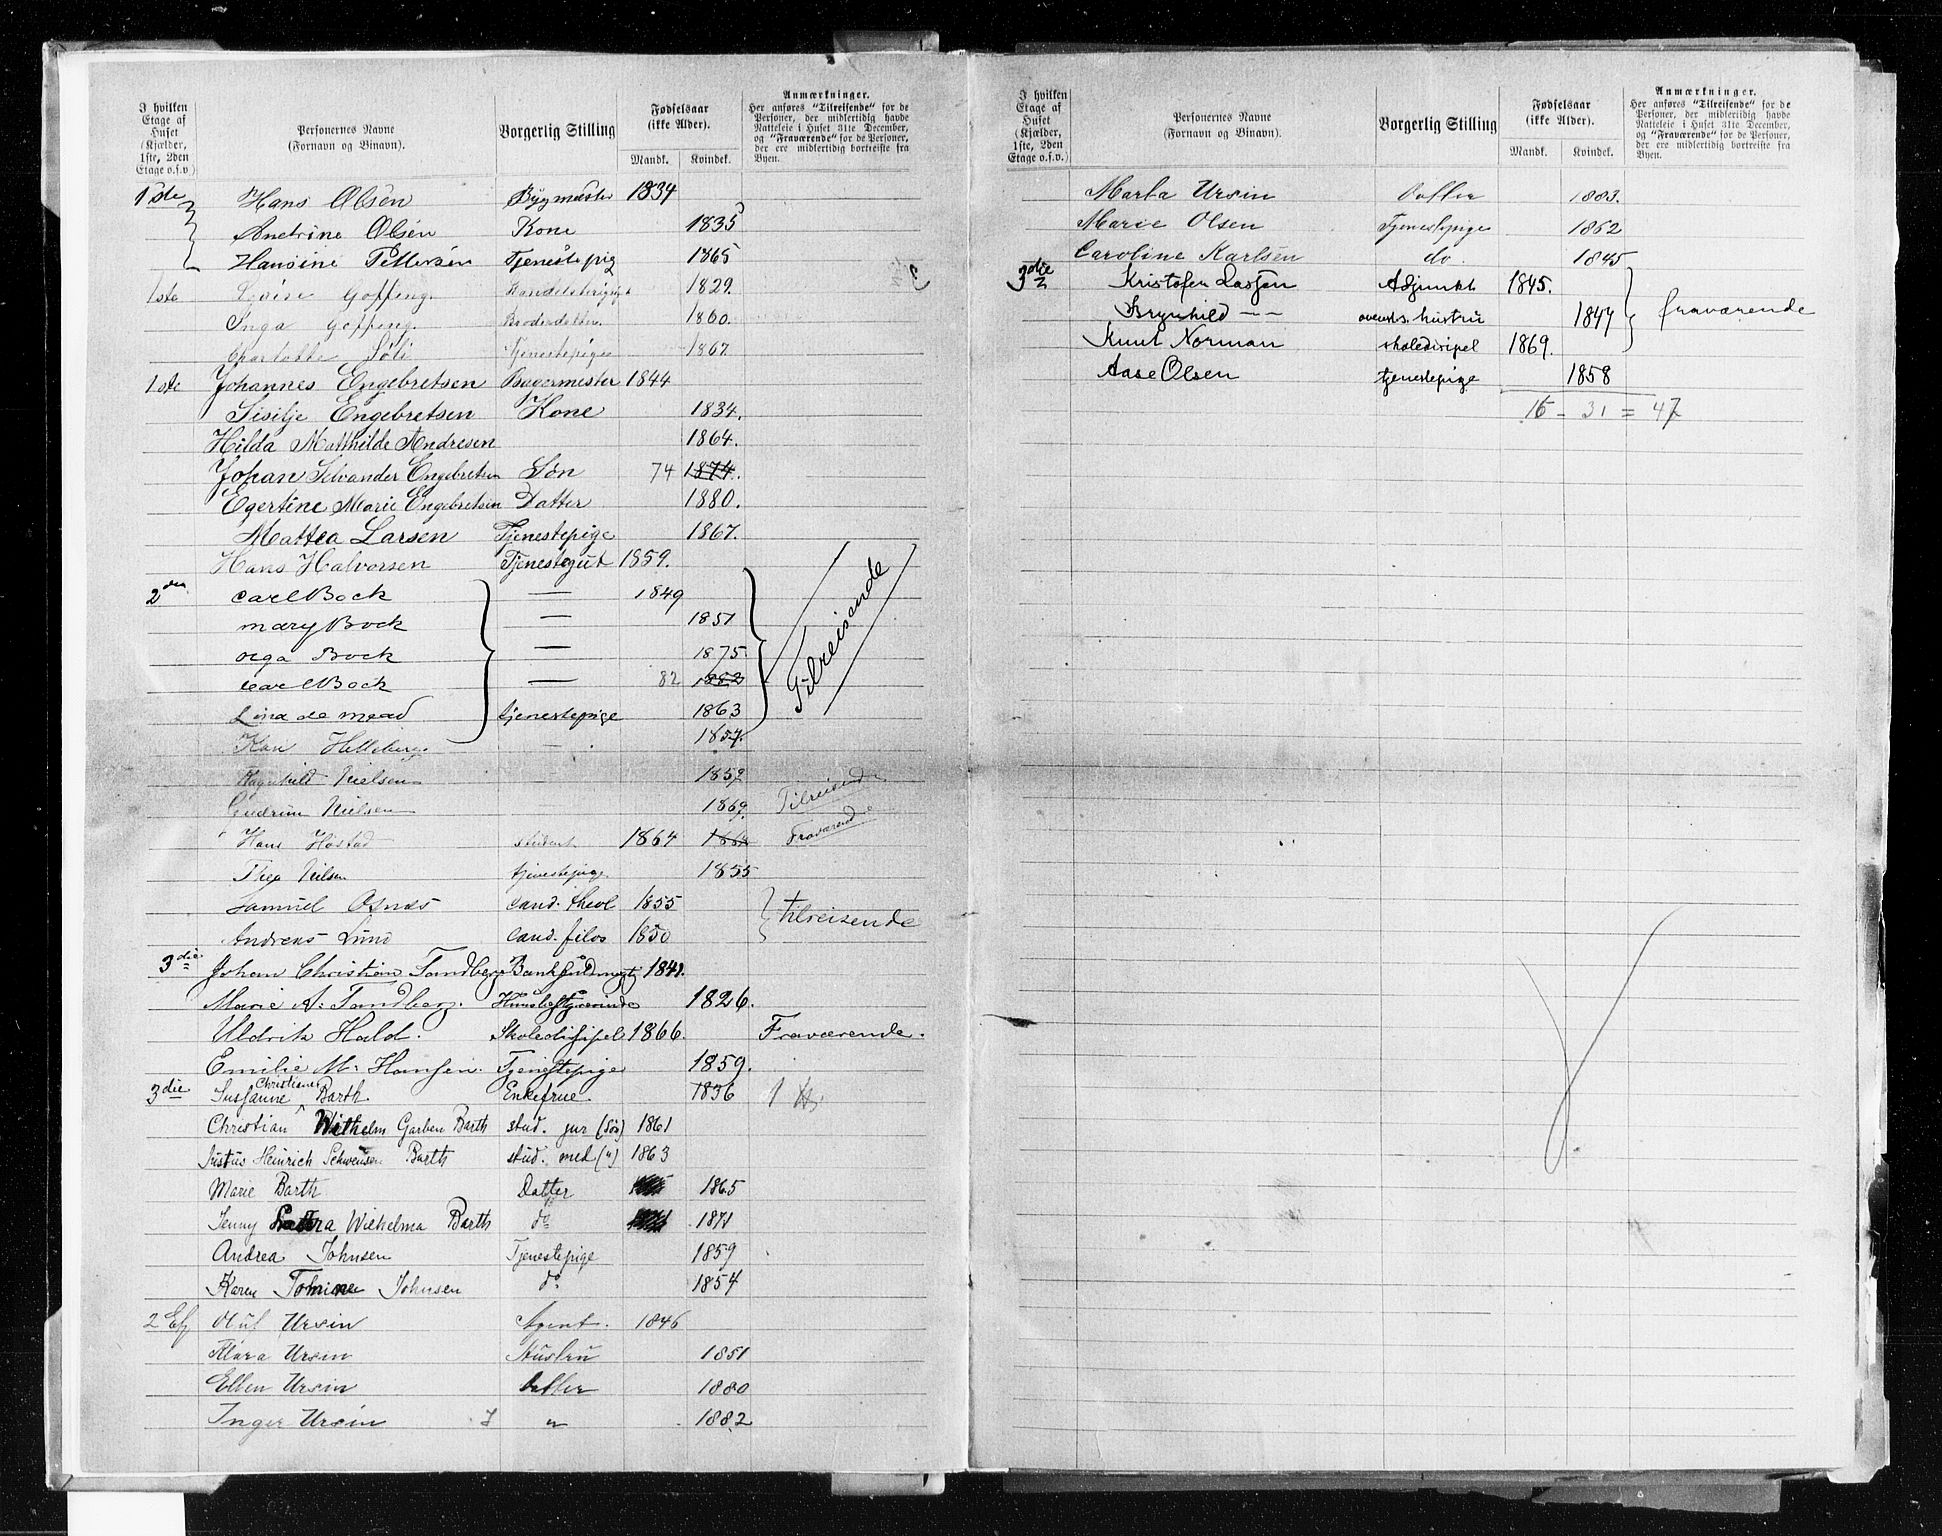 I hvilken Etage af Huset (Kjælder, 1ste, 2den Etage o.s.v.)
Personernes Navne (Fornavn og Binavn).
Borgerlig Stilling
Fødselsaar (ikke Alder).
Mandk. Kvindek.
Anmærkninger.
Her anføres "Tilreisende" for de Personer, der midlertidig havde Natteleie i Huset 31te December, og "Fraværende" for de Personer, der ere midlertidig bortreiste fra Byen.
1ste Hans Olsen Bygmester 1834
Anetrine Olsen Kone 1835
Hansine Pettersen Tjenestepig 1865
1ste Goffeng 1829.
Inga Goffeng. Broderdatter. 1860.
Charlotte Tjenestepige 1867
1ste Johannes Engebretsen Bagermester 1844
Sisilje Engebretsen Kone 1834.
Hilda Matthilde Andresen 1864.
Johan Selvander Engebretsen Søn 74 1874.
Egertine Marie Engebretsen Datter 1880.
Mattea Larsen Tjenestepige 1867.
Hans Halvorsen Tjenestegut 1859.
2den Carl Bock — 1849
Mary Bock — 1851
Olga Bock — 1875
Carl Bock — 82 1882
Lina de mead tjenestepige 1863
Tilreisende
Kari Helleberg. — 1857.
Ragnhild Nielsen 1852
Gudrun Nielsen 1869. Tilreisende
Hans Høstad student 1864 1864 Fraværende
Thea Nilsen tjenestepige 1855
Samuel Osnes cand. theol 1855
Andreas Lund Cand. filos 1850
tilreisende
3die Johan Christian Tandberg Bankfuldmegt 1841.
Marie A. Tandberg. Huusbestyrerinde 1826.
Uldrik Hald. Skoledisipel 1866. Fraværende.
Emilie M. Hansen. Tjenestepige 1859.
3die Sussanne Christiane Barth Enkefrue. 1836
Christian Wilhelm Garben Barth stud. jur (Søn) 1861
Justus Heinrich Schwensen Barth stud. med (") 1863
Marie Barth Datter 1865
Jenny Wilhelma Barth do 1871
Andrea Johnsen Tjenestepige 1859
Karen Tomine Johnsen do 1854
2 Etg Oluf Ursin Agent. 1846
Klara Ursin Hustru 1851
Ellen Ursin Datter 1880
Inger Ursin " 1882
I hvilken Etage af Huset (Kjælder, 1ste, 2den Etage o.s.v.)
Personernes Navne (Fornavn og Binavn).
Borgerlig Stilling
Fødselsaar (ikke Alder).
Mandk. Kvindek.
Anmærkninger.
Her anføres "Tilreisende" for de Personer, der midlertidig havde Natteleie i Huset 31te December, og "Fraværende" for de Personer, der ere midlertidig bortreiste fra Byen.
Marta Ursin Datter 1883.
Marie Olsen Tjenestepige 1862
Caroline Karlsen do. 1845
3die Kristofer Lassen Adjunkt 1845.
Brynhild — — ovenst. hustru 1847
fraværende
Knut Norman skoledisipel 1869.
Aase Olsen tjenestepige 1858
16 - 31 = 47